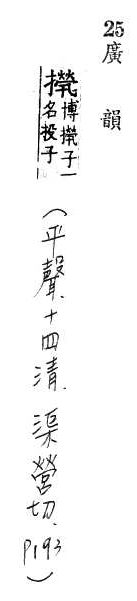 25廣韻
㩲博㩲子一
名投子
(平聲.十四清.渠營切.P193)